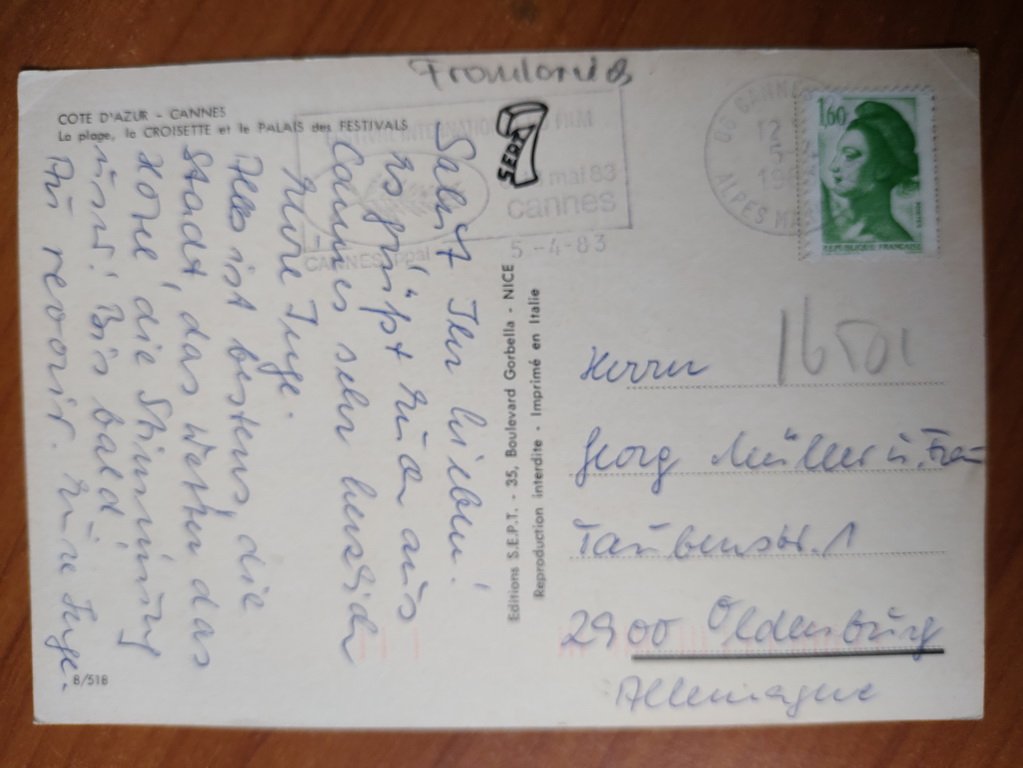 COTE D'AZUR - CANNES
La plage, la CROISETTE et le PALAIS des FESTIVALS
Salut Ihr Lieben!
Es grüßt Euch aus
Cannes sehr herzlich
Eure Inge.
Alles ist bestens, die
Stadt, das Wetter das
Hotel, die Stimmung
Bis bald!
Au revoir. Eure Inge.
8/518
SEPT
Editions S.E.P.T. - 35, Boulevard Gorbella - NICE
Reproduction interdite - Imprimé en Italie
FILM
mai 83
cannes
CANNES ppal
5-4-83
06 CANNES
12
5
ALPES
1,60
REPUBLIQUE FRANCAISE
16501
Herrn
Georg Müller u. Frau
Taubenstr. 1
2900 Oldenburg
Allemagne